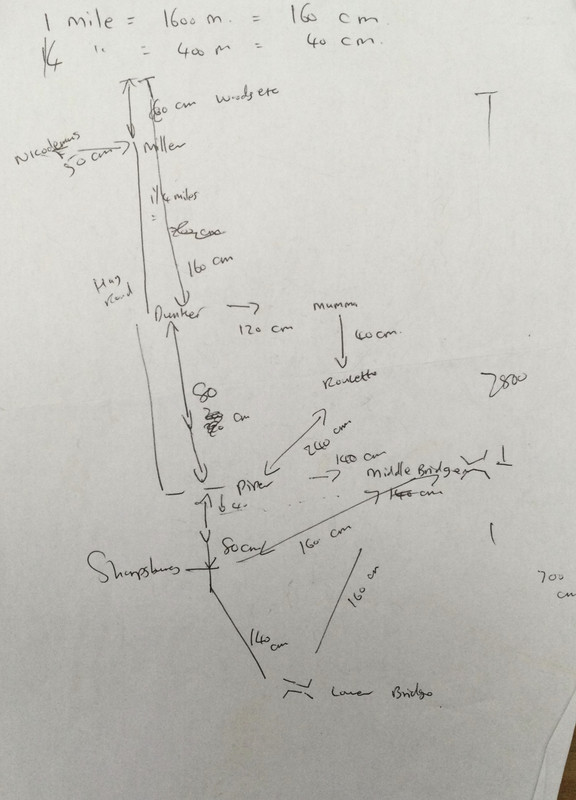 1 mile = 1600 m. = 160 cm
1/4 " = 400 m = 40 cm.
160 cm Woods etc
Nicodemus
50 cm
Miller
1/4 miles
=
160 cm
Hag
Road
Dunker
120 cm
Mumma
40 cm.
Roulette
80
cm
2800
240 cm
Piper
140 cm
Middle Bridge
140 cm
40
Sharpsburg
80 cm
160 cm
160 cm
700
cm
140
cm
Lower Bridge